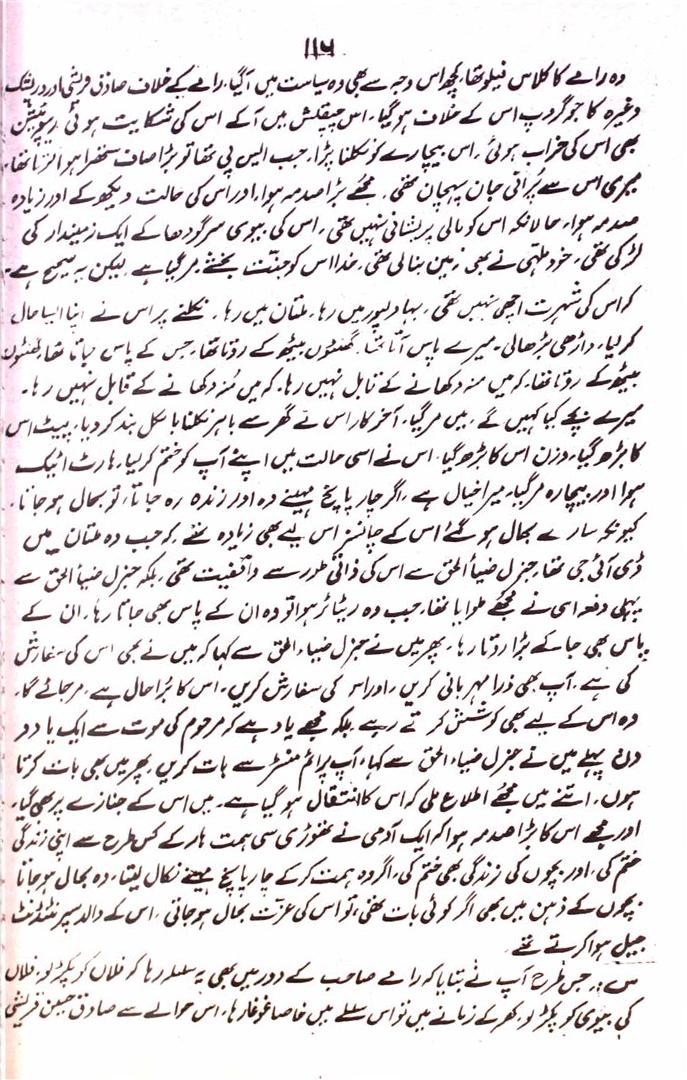 ۱۱۶
وہ رامے کا کلاس فیلو تھا، کچھ اس وجہ سے بھی وہ سیاست میں آگیا، رامے کے خلاف صادق قریشی اور دریشک
وغیرہ کا جو گروپ اس کے خلاف ہو گیا، اس چپقلش میں آکے اس کی شکایت ہوئی، ریپوٹیشن
بھی اس کی خراب ہوئی، اس بیچارے کو نکلنا پڑا، جب ایس پی تھا تو بڑا صاف ستھرا ہوا کرتا تھا،
میری اس سے پُرانی جان پہچان تھی، مجھے بڑا صدمہ ہوا، اور اس کی حالت دیکھ کے اور زیادہ
صدمہ ہوا، حالانکہ اس کو مالی پریشانی نہیں تھی، اس کی بیوی سرگودھا کے ایک زمیندار کی
لڑکی تھی، خود ملہی نے بھی زمین بنا لی تھی، خدا اس کو جنت بخشے، مر گیا ہے لیکن یہ صحیح ہے
کہ اس کی شہرت اچھی نہیں تھی، بہاولپور میں رہا، ملتان میں رہا۔ نکلنے پر اس نے اپنا ایسا حال
کر لیا، داڑھی بڑھالی، میرے پاس آتا تھا، گھنٹوں بیٹھ کے روتا تھا، جس کے پاس جاتا تھا، گھنٹوں
بیٹھ کے روتا تھا، کہ میں منہ دکھانے کے قابل نہیں رہا، کہ میں مُنہ دکھانے کے قابل نہیں رہا۔
میرے بچے کیا کہیں گے، میں مر گیا، آخر کار اس نے گھر سے باہر نکلنا بالکل بند کر دیا، پیٹ اس
کا بڑھ گیا، وزن اس کا بڑھ گیا، اس نے اسی حالت میں اپنے آپ کو ختم کر لیا، ہارٹ اٹیک
ہوا اور بیچارہ مر گیا، میرا خیال ہے، اگر چار پانچ مہینے وہ اور زندہ رہ جاتا، تو بحال ہو جاتا،
کیونکہ سارے بحال ہو گئے اس کے چانسز اس لیے بھی زیادہ تھے، کہ جب وہ ملتان میں
ڈی آئی جی تھا، جنرل ضیاُالحق سے اس کی ذاتی طور سے واقفیت تھی، بلکہ جنرل ضیاُالحق سے
پہلی دفعہ اسی نے مجھے ملوایا تھا، جب وہ ریٹائر ہوا تو وہ ان کے پاس بھی جاتا رہا، ان کے
پاس بھی جا کے بڑا روتا رہا، پھر میں نے جنرل ضیاء الحق سے کہا کہ میں نے بھی اس کی سفارش
کی ہے، آپ بھی ذرا مہربانی کریں، اور اس کی سفارش کریں، اس کا بُرا حال ہے، مر جائے گا،
وہ اس کے لیے بھی کوشش کرتے رہے، بلکہ مجھے یاد ہے کہ مرحوم کی موت سے ایک یا دو
دن پہلے میں نے جنرل ضیاء الحق سے کہا، آپ پرائم منسٹر سے بات کریں، پھر میں بھی بات کرتا
ہوں، اتنے میں مجھے اطلاع ملی کہ اس کا انتقال ہو گیا ہے۔ میں اس کے جنازے پر بھی گیا،
اور مجھے اس کا بڑا صدمہ ہوا کہ ایک آدمی نے تھوڑی سی ہمت ہار کے کس طرح سے اپنی زندگی
ختم کی، اور بچوں کی زندگی بھی ختم کی، اگر وہ ہمت کر کے چار پانچ مہینے نکال لیتا، وہ بحال ہو جاتا
بچوں کے ذہن میں بھی اگر کوئی بات تھی، تو اس کی عزّت بحال ہو جاتی، اس کے والد سپرنٹنڈنٹ
جیل ہوا کرتے تھے۔
س: جس طرح آپ نے بتایا کہ رامے صاحب کے دور میں بھی یہ سلسلہ رہا کہ فلاں کو پکڑ لو، فلاں
کی بیوی کو پکڑ لو، کھر کے زمانے میں تو اس سلسلے میں خاصا غوغا رہا، اس حوالے سے صادق حسین قریشی